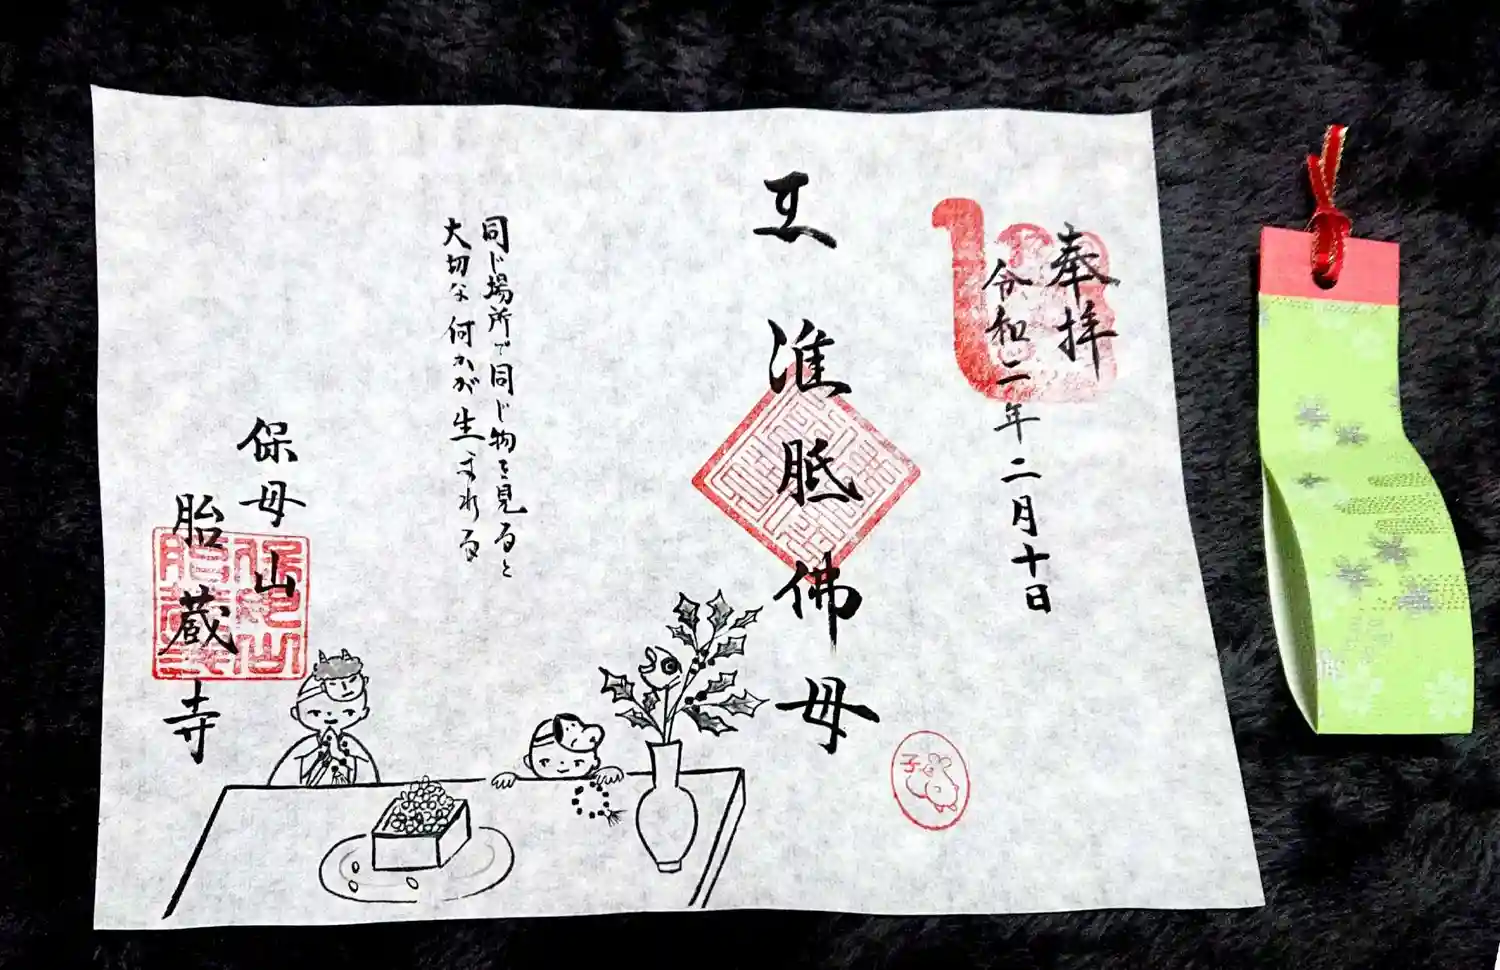 奉拝
令和二年二月十日
准胝佛母
同じ場所で同じ物を見ると
大切な何かが生まれる
保母山
胎蔵寺
保母山
胎蔵寺
子